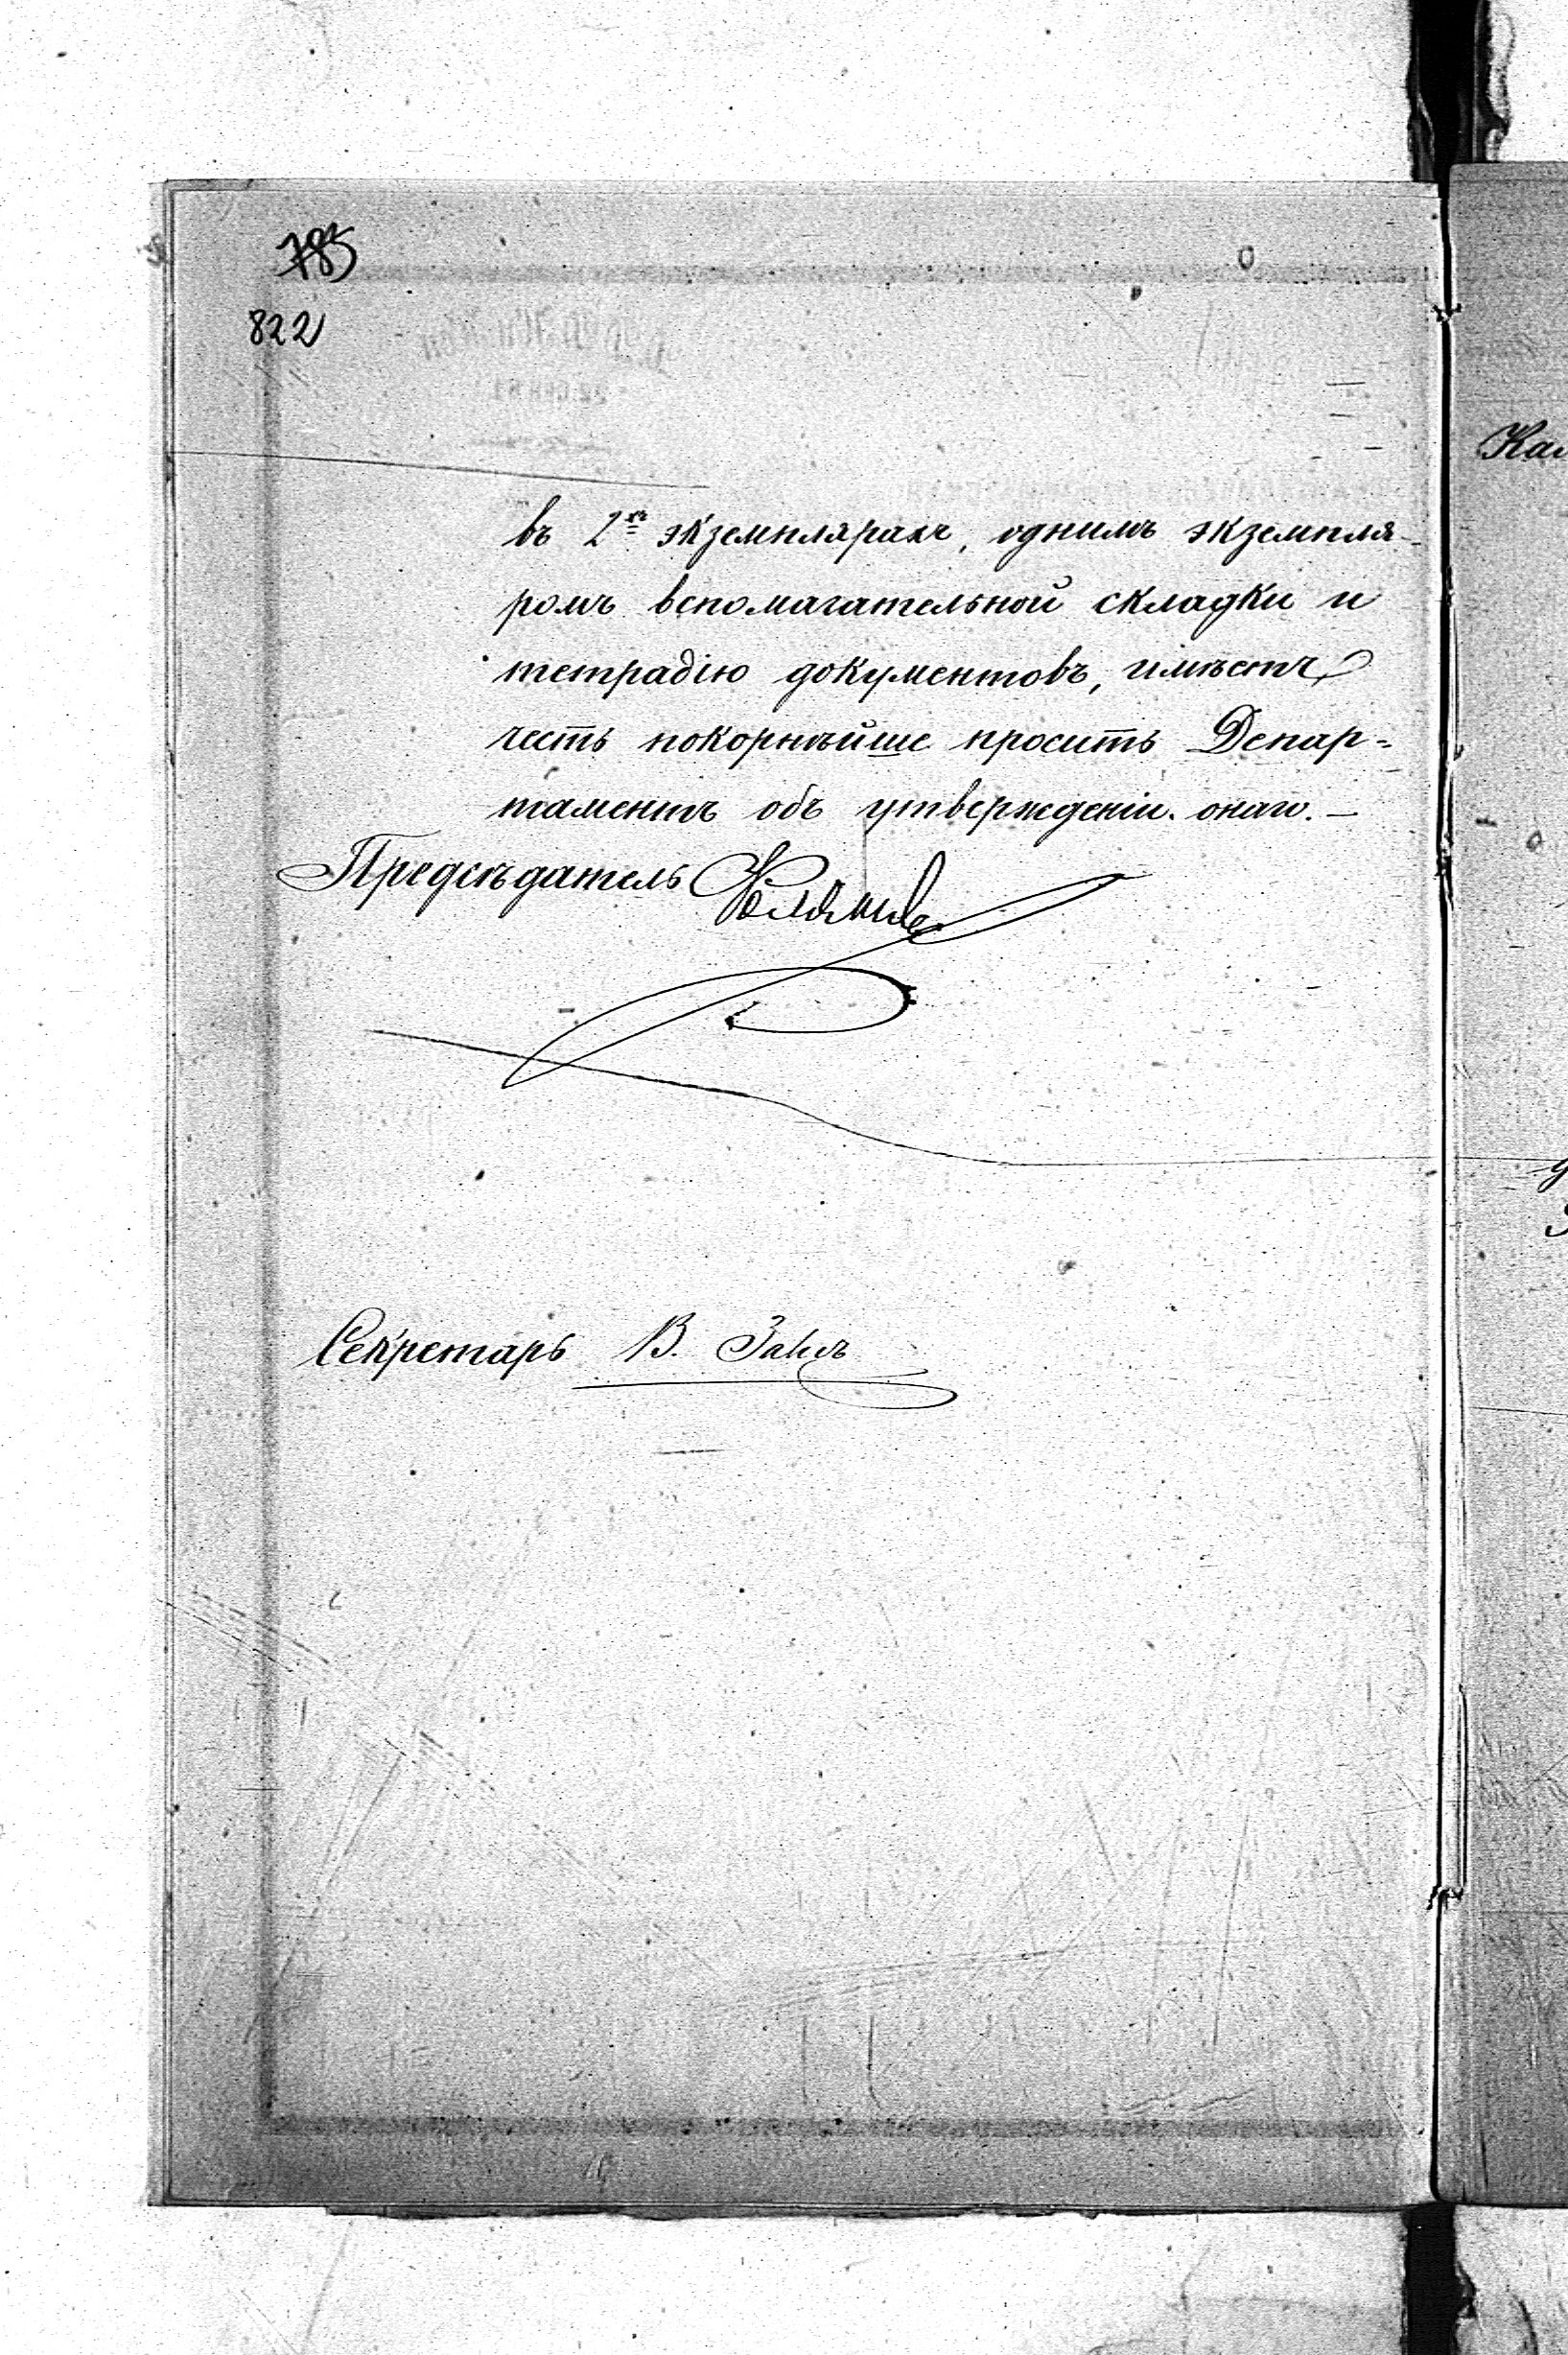 785
822
въ 2хъ экземплярахъ, однимъ экземпля-
ромъ вспомагательной складки и
тетрадію документовъ, имѣетъ
честь покорнѣйше просить Депар=
таментъ объ утвержденіи онаго. —
Предсѣдатель
Секретарь В.